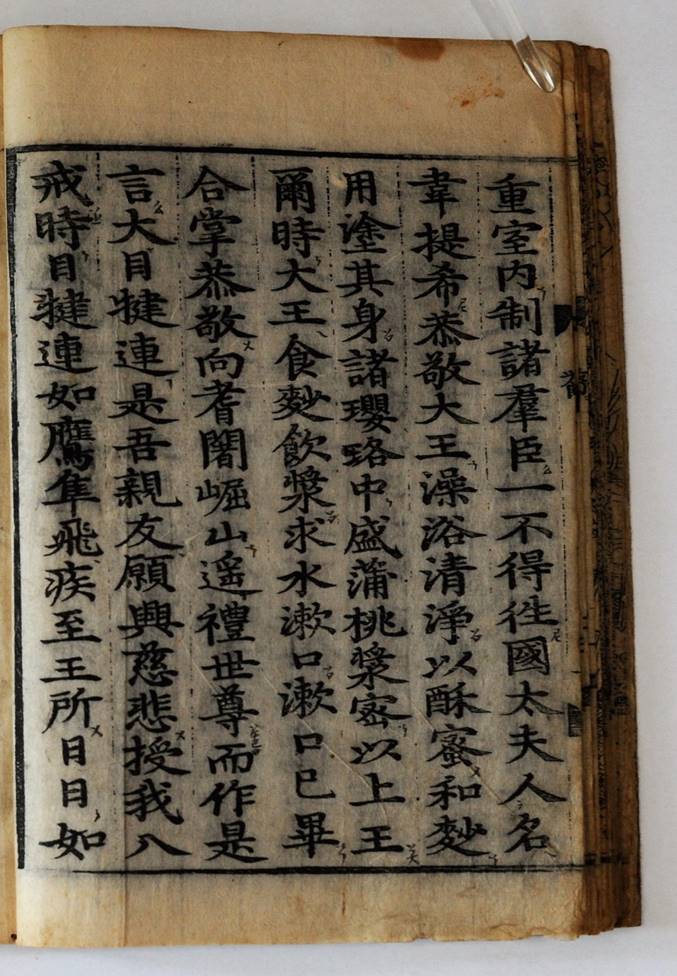 重室内制諸羣臣一不得徃國太夫人名
韋提希恭敬大王澡浴清淨以酥蜜和麨
用塗其身諸瓔珞中盛蒲桃漿密以上王
爾時大王食麨飲漿求水漱口漱口已畢
合掌恭敬向耆闍崛山遥禮世尊而作是
言大目犍連是吾親友願興慈悲授我八
戒時目犍連如鷹隼飛疾至王所日日如